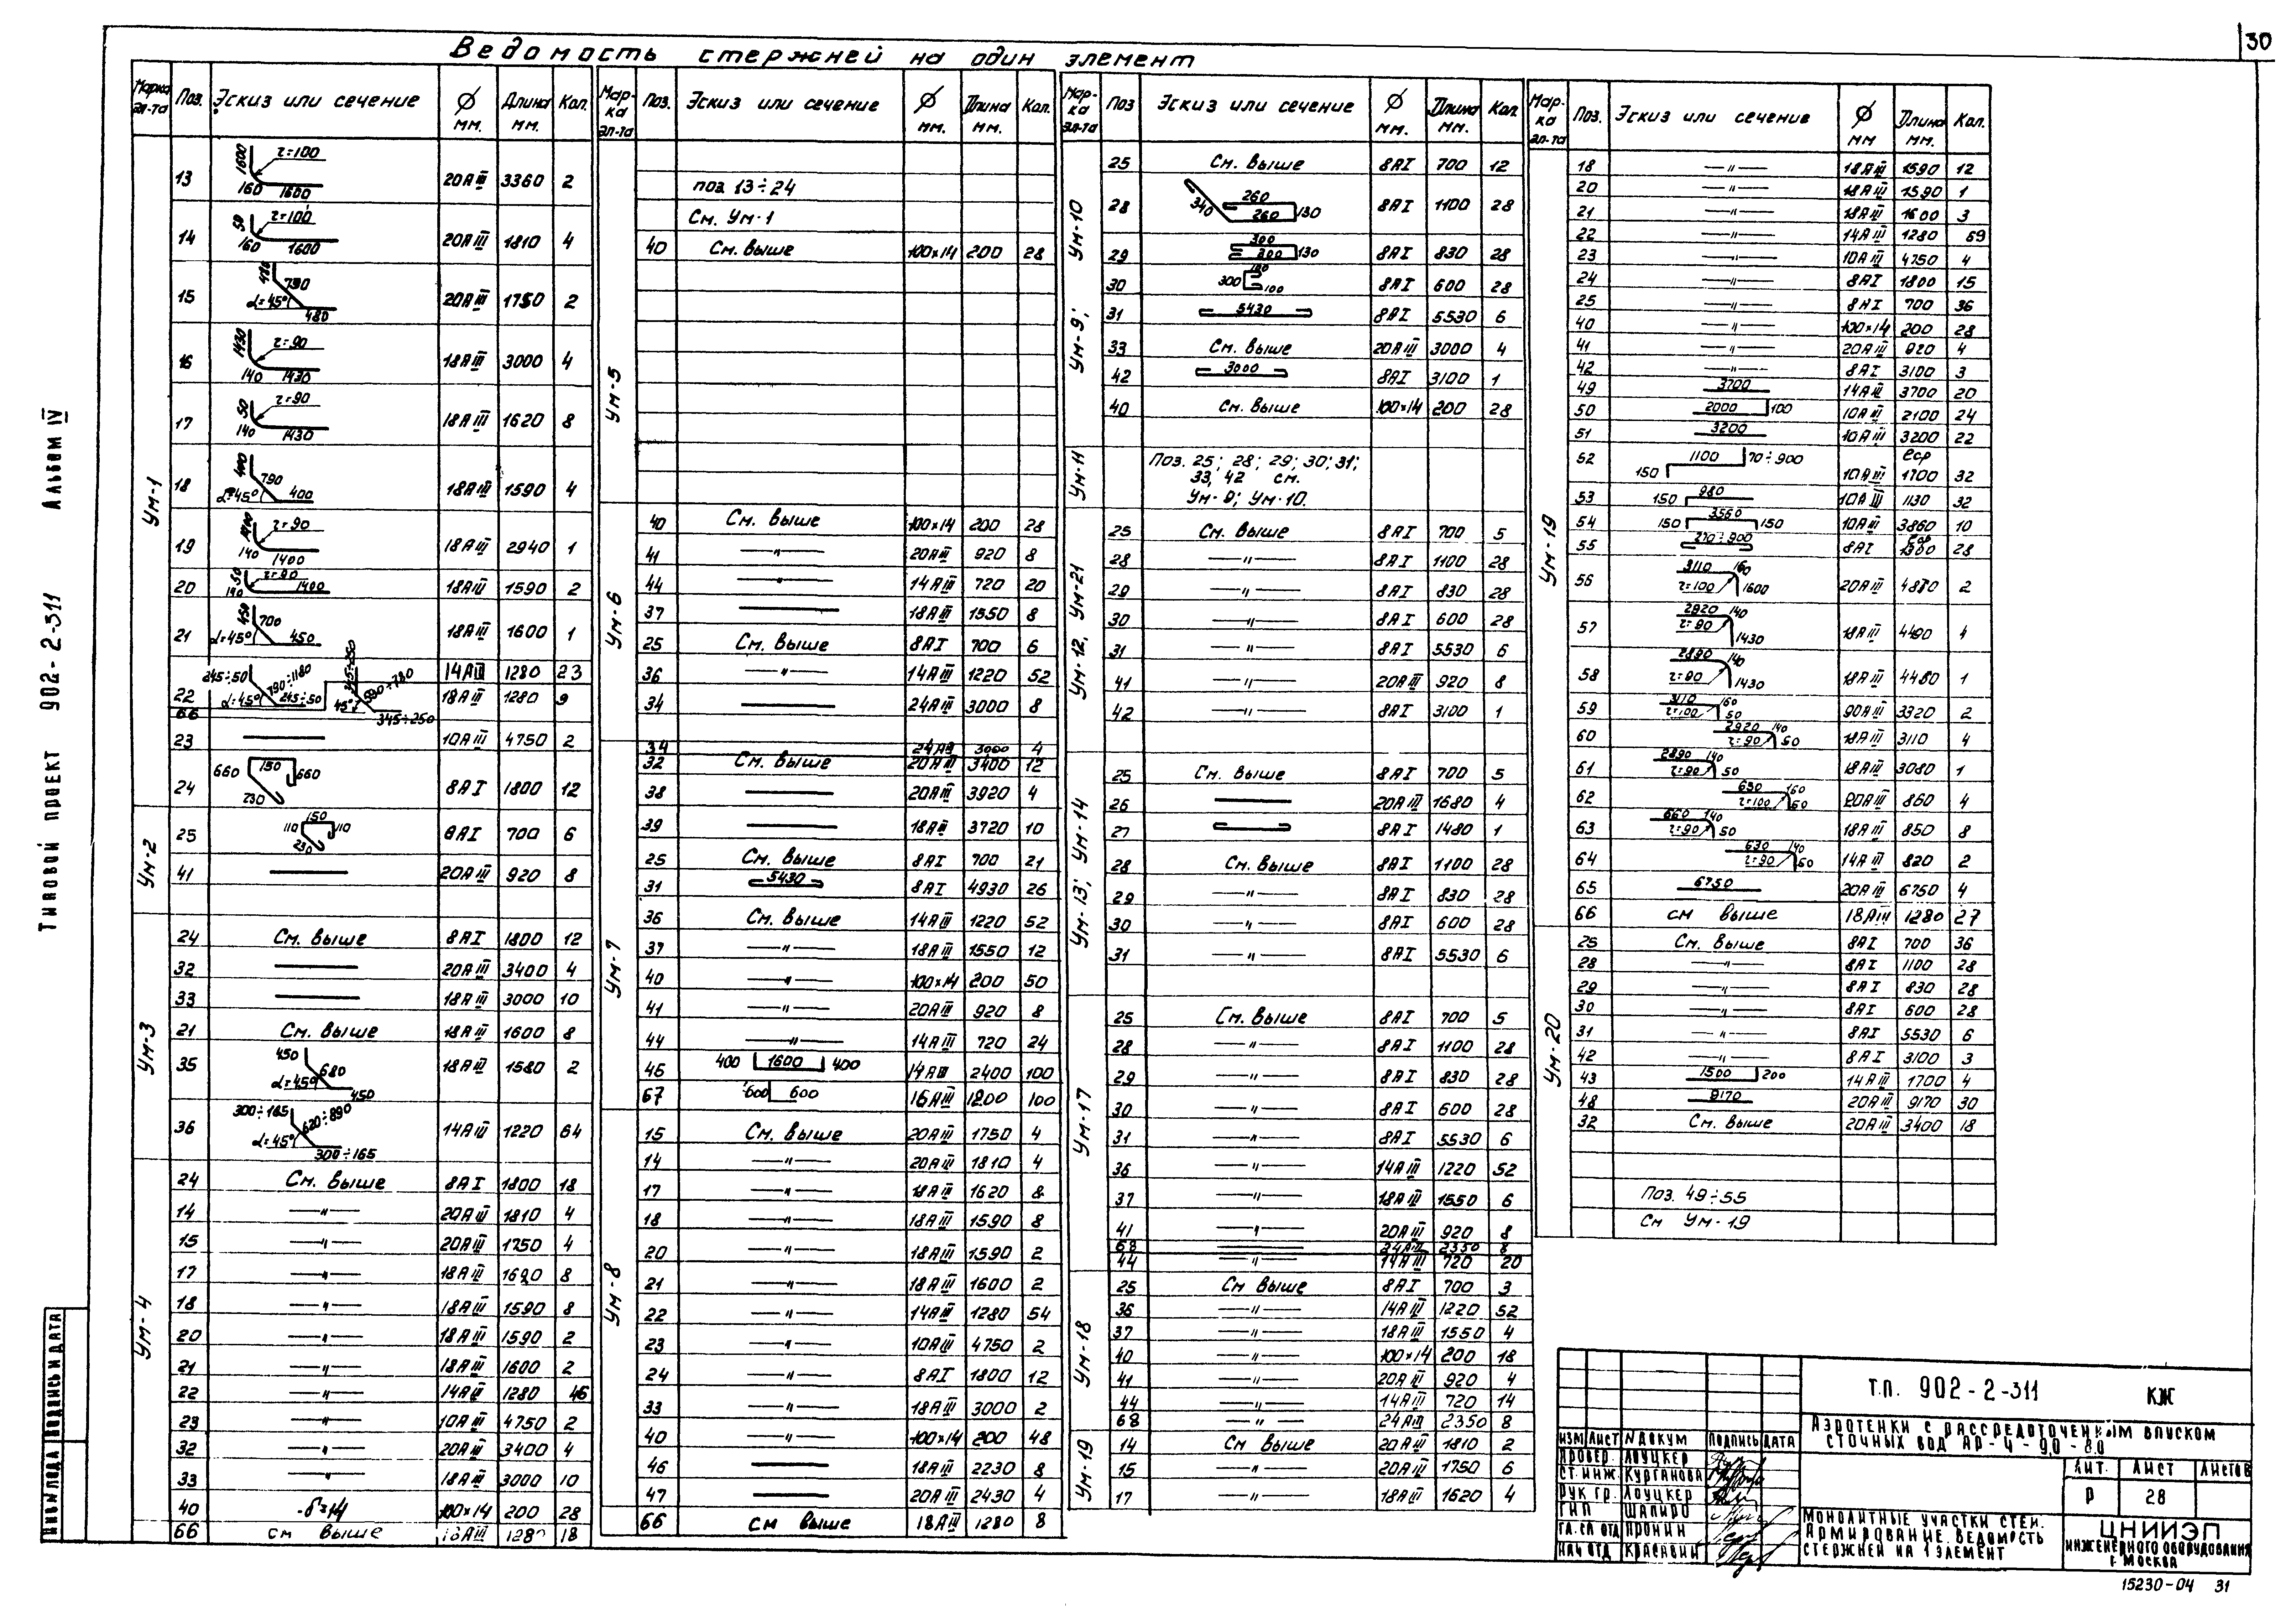 30
Ведомость стержней на один элемент
Типовой проект 902-2-311 Альбом IV
Марка эл-та Поз. Эскиз или сечение ∅ мм. Длина мм. Кол.
Ум-1
13 1600 r=100 160 1600 20АIII 3360 2
14 50 r=100 160 1600 20АIII 1810 4
15 790 α=45° 480 20АIII 1750 2
16 1430 r=90 140 1430 18АIII 3000 4
17 50 r=90 140 1430 18АIII 1620 8
18 400 790 α=45° 400 18АIII 1590 4
19 1400 r=90 140 1400 18АIII 2940 1
20 50 r=90 140 1400 18АIII 1590 2
21 450 700 α=45° 450 18АIII 1600 1
22 245÷50 790÷1180 α=45° 245÷50 14АIII 1280 23
66 345÷250 590÷780 45° 345÷250 18АIII 1280 9
23 10АIII 4750 2
24 660 150 660 230 8АI 1800 12
Ум-2
25 110 150 110 230 8АI 700 6
41 20АIII 920 8
Ум-3
24 См. выше 8АI 1800 12
32 20АIII 3400 4
33 18АIII 3000 10
21 См. выше 18АIII 1600 8
35 450 680 α=45° 450 18АIII 1580 2
36 300÷165 620÷890 α=45° 300÷165 14АIII 1220 64
Ум-4
24 См. выше 8АI 1800 18
14 —"— 20АIII 1810 4
15 —"— 20АIII 1750 4
17 —"— 18АIII 1620 8
18 —"— 18АIII 1590 8
20 —"— 18АIII 1590 2
21 —"— 18АIII 1600 2
22 —"— 14АIII 1280 46
23 —"— 10АIII 4750 2
32 —"— 20АIII 3400 4
33 —"— 18АIII 3000 10
40 -δ=14 100×14 200 28
66 см выше 18АIII 1280 18
Марка эл-та Поз. Эскиз или сечение ∅ мм. Длина мм. Кол.
Ум-5
поз 13÷24
См. Ум-1
40 См. выше 100×14 200 28
Ум-6
40 См. выше 100×14 200 28
41 —"— 20АIII 920 8
44 —"— 14АIII 720 20
37 18АIII 1550 8
25 См. выше 8АI 700 6
36 —"— 14АIII 1220 52
34 24АIII 3000 8
Ум-7
34 24АIII 3000 4
32 См. выше 20АIII 3400 12
38 20АIII 3920 4
39 18АIII 3720 10
25 См. выше 8АI 700 21
31 5430 8АI 4930 26
36 См. выше 14АIII 1220 52
37 —"— 18АIII 1550 12
40 —"— 100×14 200 50
41 —"— 20АIII 920 8
44 —"— 14АIII 720 24
45 400 1600 400 14АIII 2400 100
67 600 600 16АIII 1200 100
Ум-8
15 См. выше 20АIII 1750 4
14 —"— 20АIII 1810 4
17 —"— 18АIII 1620 8
18 —"— 18АIII 1590 8
20 —"— 18АIII 1590 2
21 —"— 18АIII 1600 2
22 —"— 14АIII 1280 54
23 —"— 10АIII 4750 2
24 —"— 8АI 1800 12
33 —"— 18АIII 3000 2
40 —"— 100×14 200 48
46 18АIII 2230 8
47 20АIII 2430 4
66 см выше 18АIII 1280 8
Марка эл-та Поз Эскиз или сечение ∅ мм. Длина мм. Кол.
Ум-9; Ум-10
25 См. выше 8АI 700 12
28 340 260 260 130 8АI 1100 28
29 300 300 130 8АI 830 28
30 300 100 100 8АI 600 28
31 5430 8АI 5530 6
33 См. выше 20АIII 3000 4
42 3000 8АI 3100 1
40 См. выше 100×14 200 28
Ум-11
Поз. 25; 28; 29; 30; 31;
33, 42 см.
Ум-9; Ум-10.
Ум-12, Ум-21
25 См. выше 8АI 700 5
28 —"— 8АI 1100 28
29 —"— 8АI 830 28
30 —"— 8АI 600 28
31 —"— 8АI 5530 6
41 —"— 20АIII 920 8
42 —"— 8АI 3100 1
Ум-13; Ум-14
25 См. выше 8АI 700 5
26 20АIII 1680 4
27 8АI 1480 1
28 См. выше 8АI 1100 28
29 —"— 8АI 830 28
30 —"— 8АI 600 28
31 —"— 8АI 5530 6
Ум-17
25 См. выше 8АI 700 5
28 —"— 8АI 1100 28
29 —"— 8АI 830 28
30 —"— 8АI 600 28
31 —"— 8АI 5530 6
36 —"— 14АIII 1220 52
37 —"— 18АIII 1550 6
41 —"— 20АIII 920 8
68 24АIII 2350 8
44 —"— 14АIII 720 20
Ум-18
25 См выше 8АI 700 3
36 —"— 14АIII 1220 52
37 —"— 18АIII 1550 4
40 —"— 100×14 200 18
41 —"— 20АIII 920 4
44 —"— 14АIII 720 14
68 —"— 24АIII 2350 8
Ум-19
14 См выше 20АIII 1810 2
15 —"— 20АIII 1750 6
17 —"— 18АIII 1620 4
Марка эл-та Поз. Эскиз или сечение ∅ мм Длина мм. Кол.
Ум-19
18 —"— 18АIII 1590 12
20 —"— 18АIII 1590 1
21 —"— 18АIII 1600 3
22 —"— 14АIII 1280 69
23 —"— 10АIII 4750 4
24 —"— 8АI 1800 15
25 —"— 8АI 700 36
40 —"— 100×14 200 28
41 —"— 20АIII 920 4
42 —"— 8АI 3100 3
49 3700 14АIII 3700 20
50 2000 100 10АIII 2100 24
51 3200 10АIII 3200 22
52 150 1100 70÷900 10АIII ℓср 1700 32
53 150 980 10АIII 1130 32
54 150 3560 150 10АIII 3860 10
55 8АI ℓср 1300 28
56 3110 160 r=100 1600 20АIII 4870 2
57 2920 140 r=90 1430 18АIII 4490 4
58 2890 140 r=90 1430 18АIII 4480 1
59 3110 160 r=100 50 3320 2
60 2920 140 r=90 50 18АIII 3110 4
61 2890 140 r=90 50 18АIII 3080 1
62 650 160 r=100 50 20АIII 860 4
63 660 140 r=90 50 18АIII 850 8
64 630 140 r=90 50 14АIII 820 2
65 6750 20АIII 6750 4
66 см выше 18АIII 1280 27
Ум-20
25 См. выше 8АI 700 36
28 —"— 8АI 1100 28
29 —"— 8АI 830 28
30 —"— 8АI 600 28
31 —"— 8АI 5530 6
42 —"— 8АI 3100 3
43 1500 200 14АIII 1700 4
48 9170 20АIII 9170 30
32 См. выше 20АIII 3400 18
Поз. 49÷55
См Ум-19
Т.п. 902-2-311 КЖ
Аэротенки с рассредоточенным впуском
сточных вод АР-4-9,0-8,0
Изм Лист N докум Подпись Дата
Провер. Лоуцкер
Ст. инж. Курганова
Рук гр. Лоуцкер
ГИП Шапиро
Гл. сп. отд Пронин
Нач отд Красавин
Лит. Лист Листов
Р 28
Монолитные участки стен.
Армирование. Ведомость
стержней на 1 элемент
ЦНИИЭП
инженерного оборудования
г. Москва
Инв № подл Подпись и дата
15230-04 31